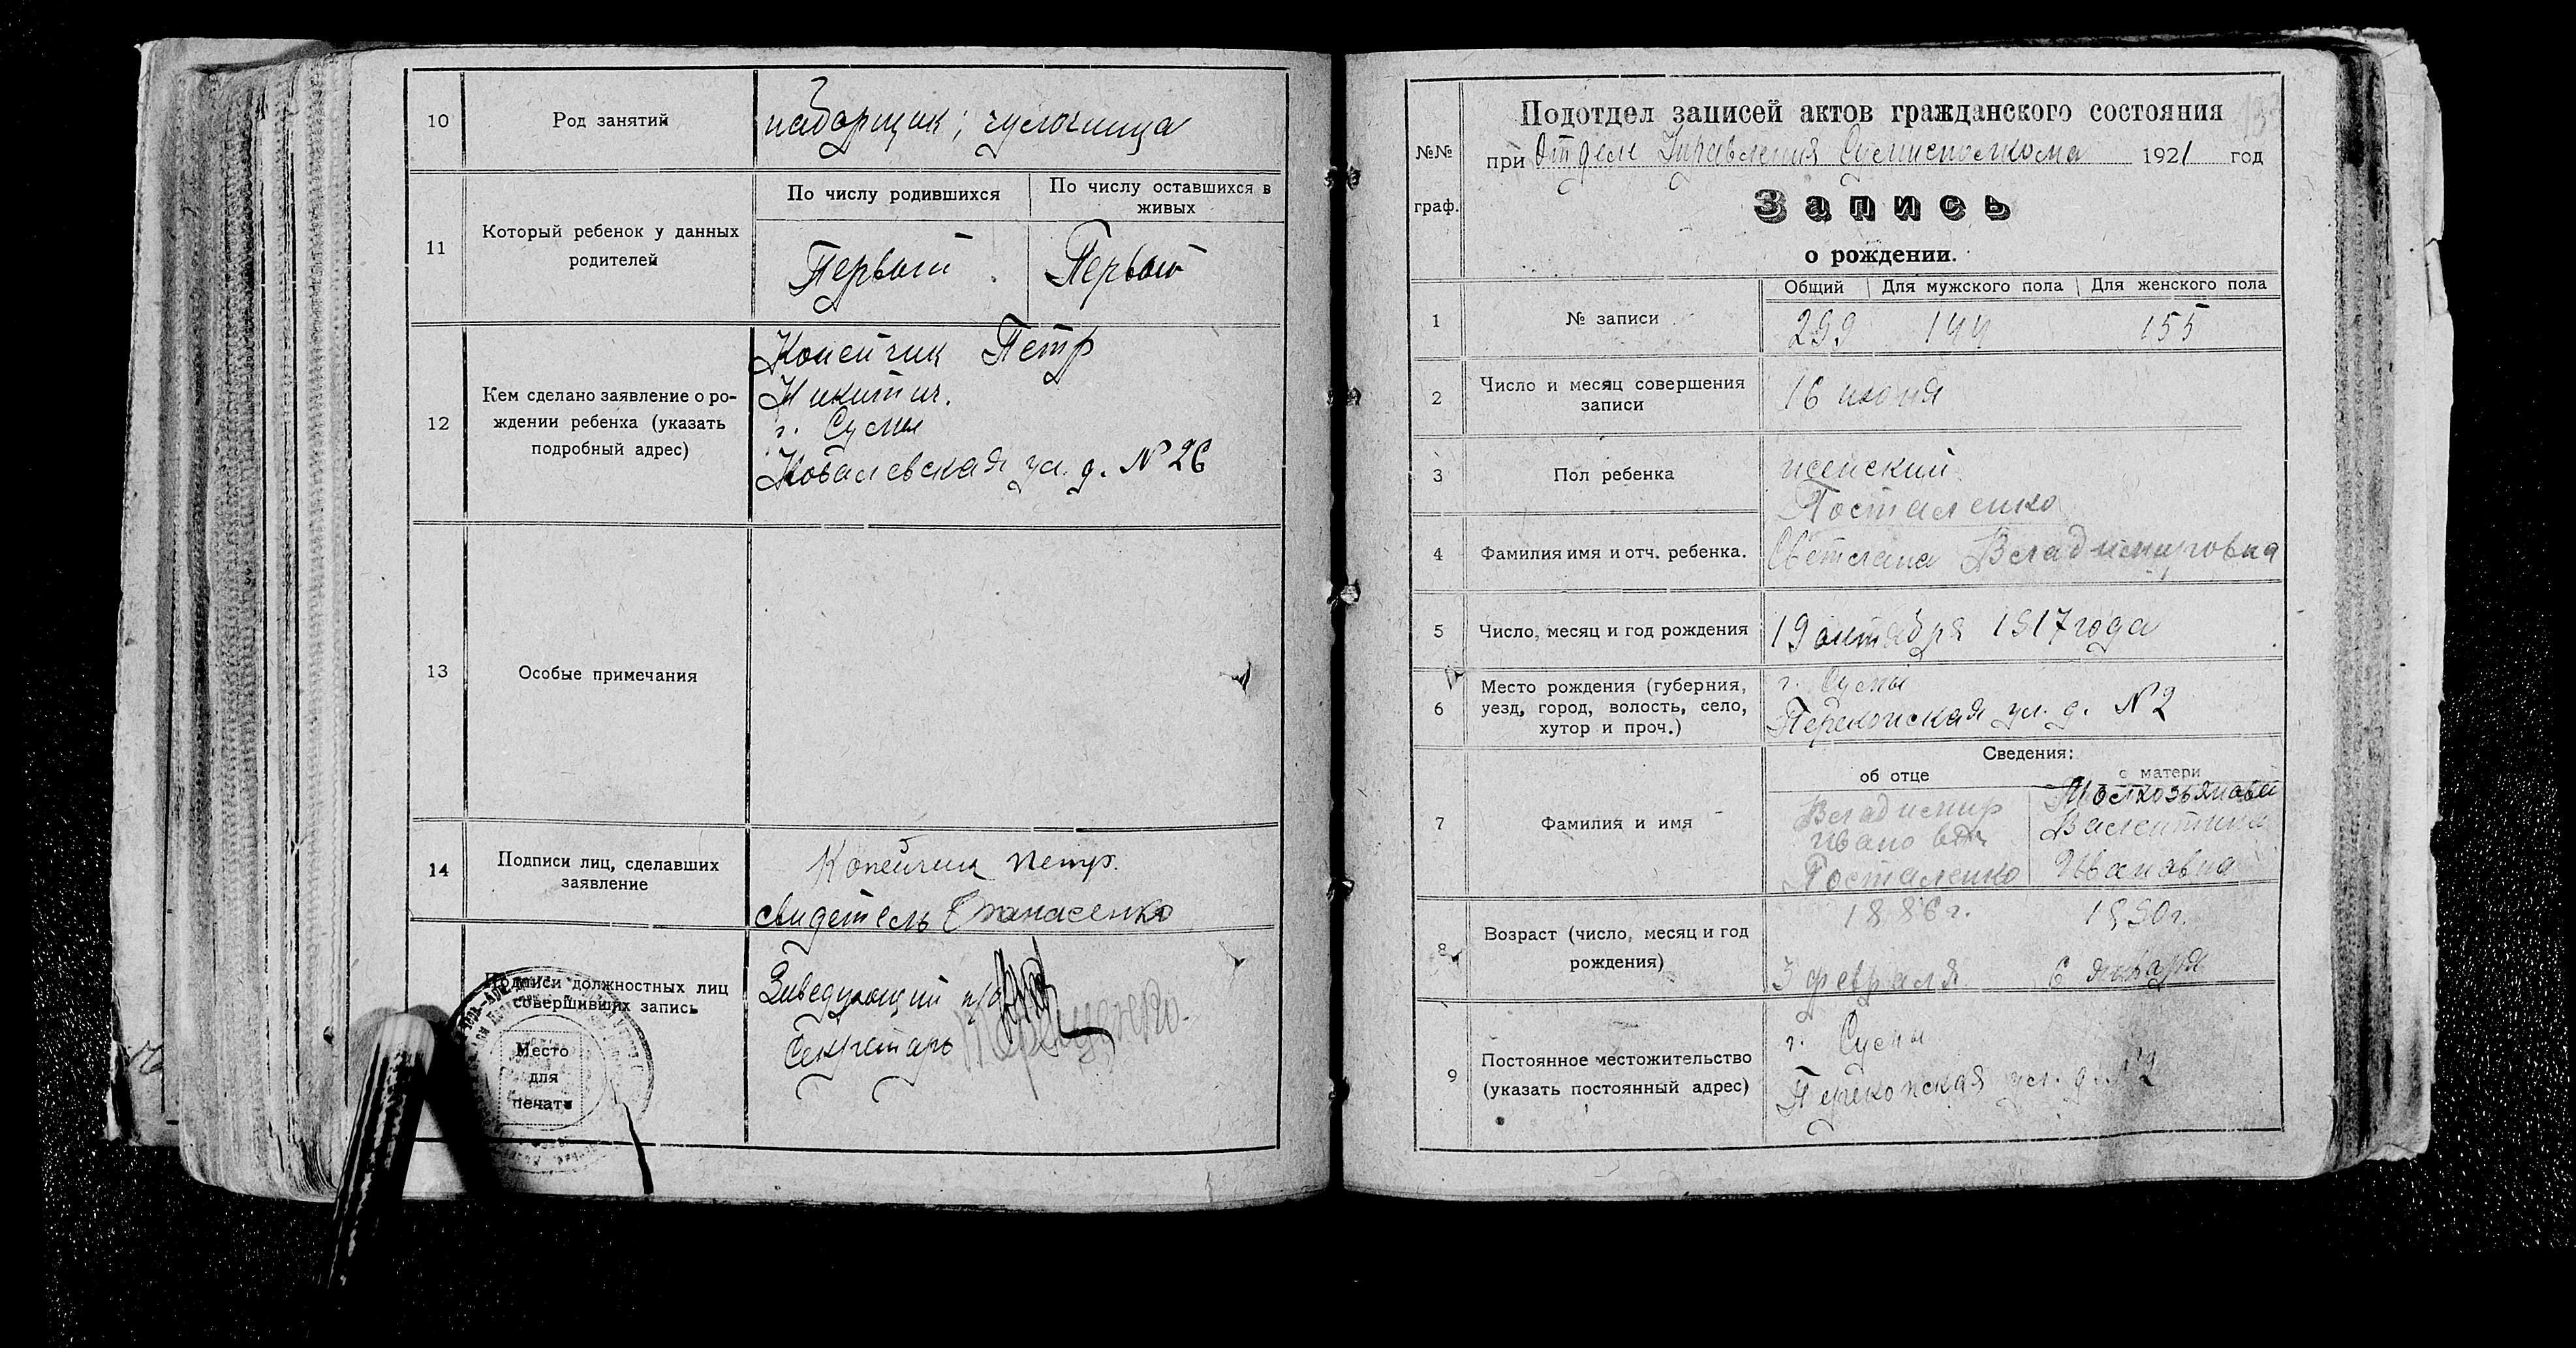 10
Род занятий
наборщик; чулочница
11
Который ребенок у данных
родителей
По числу родившихся
По числу оставшихся в
живых
Первый
Первый
12
Кем сделано заявление о ро-
ждении ребенка (указать
подробный адрес)
Копейчик Петр
Никитич.
г. Сумы
Ковалевская ул. д. № 26
13
Особые примечания
14
Подписи лиц, сделавших
заявление
Копейчик Петр.
свидетель Опанасенко
Подписи должностных лиц
совершивших запись
Место
для
печати
Заведующий п/о
Секретарь
№№
граф.
Подотдел записей актов гражданского состояния
при Отделе Управления Сумисполкома 1921 год
Запись
о рождении.
Общий
Для мужского пола
Для женского пола
1
№ записи
299 144 155
2
Число и месяц совершения
записи
16 июня
3
Пол ребенка
женский
4
Фамилия имя и отч. ребенка.
Посталенко
Светлана Владимировна
5
Число, месяц и год рождения
19 октября 1917 года
6
Место рождения (губерния,
уезд, город, волость, село,
хутор и проч.)
г. Сумы
Перекопская ул. д. № 2
Сведения:
об отце
о матери
7
Фамилия и имя
Владимир
Иванович
Посталенко
Валентина
Ивановна
8
Возраст (число, месяц и год
рождения)
1886 г.
3 февраля
1890 г.
6 января
9
Постоянное местожительство
(указать постоянный адрес)
г. Сумы
Перекопская ул. д. № 2